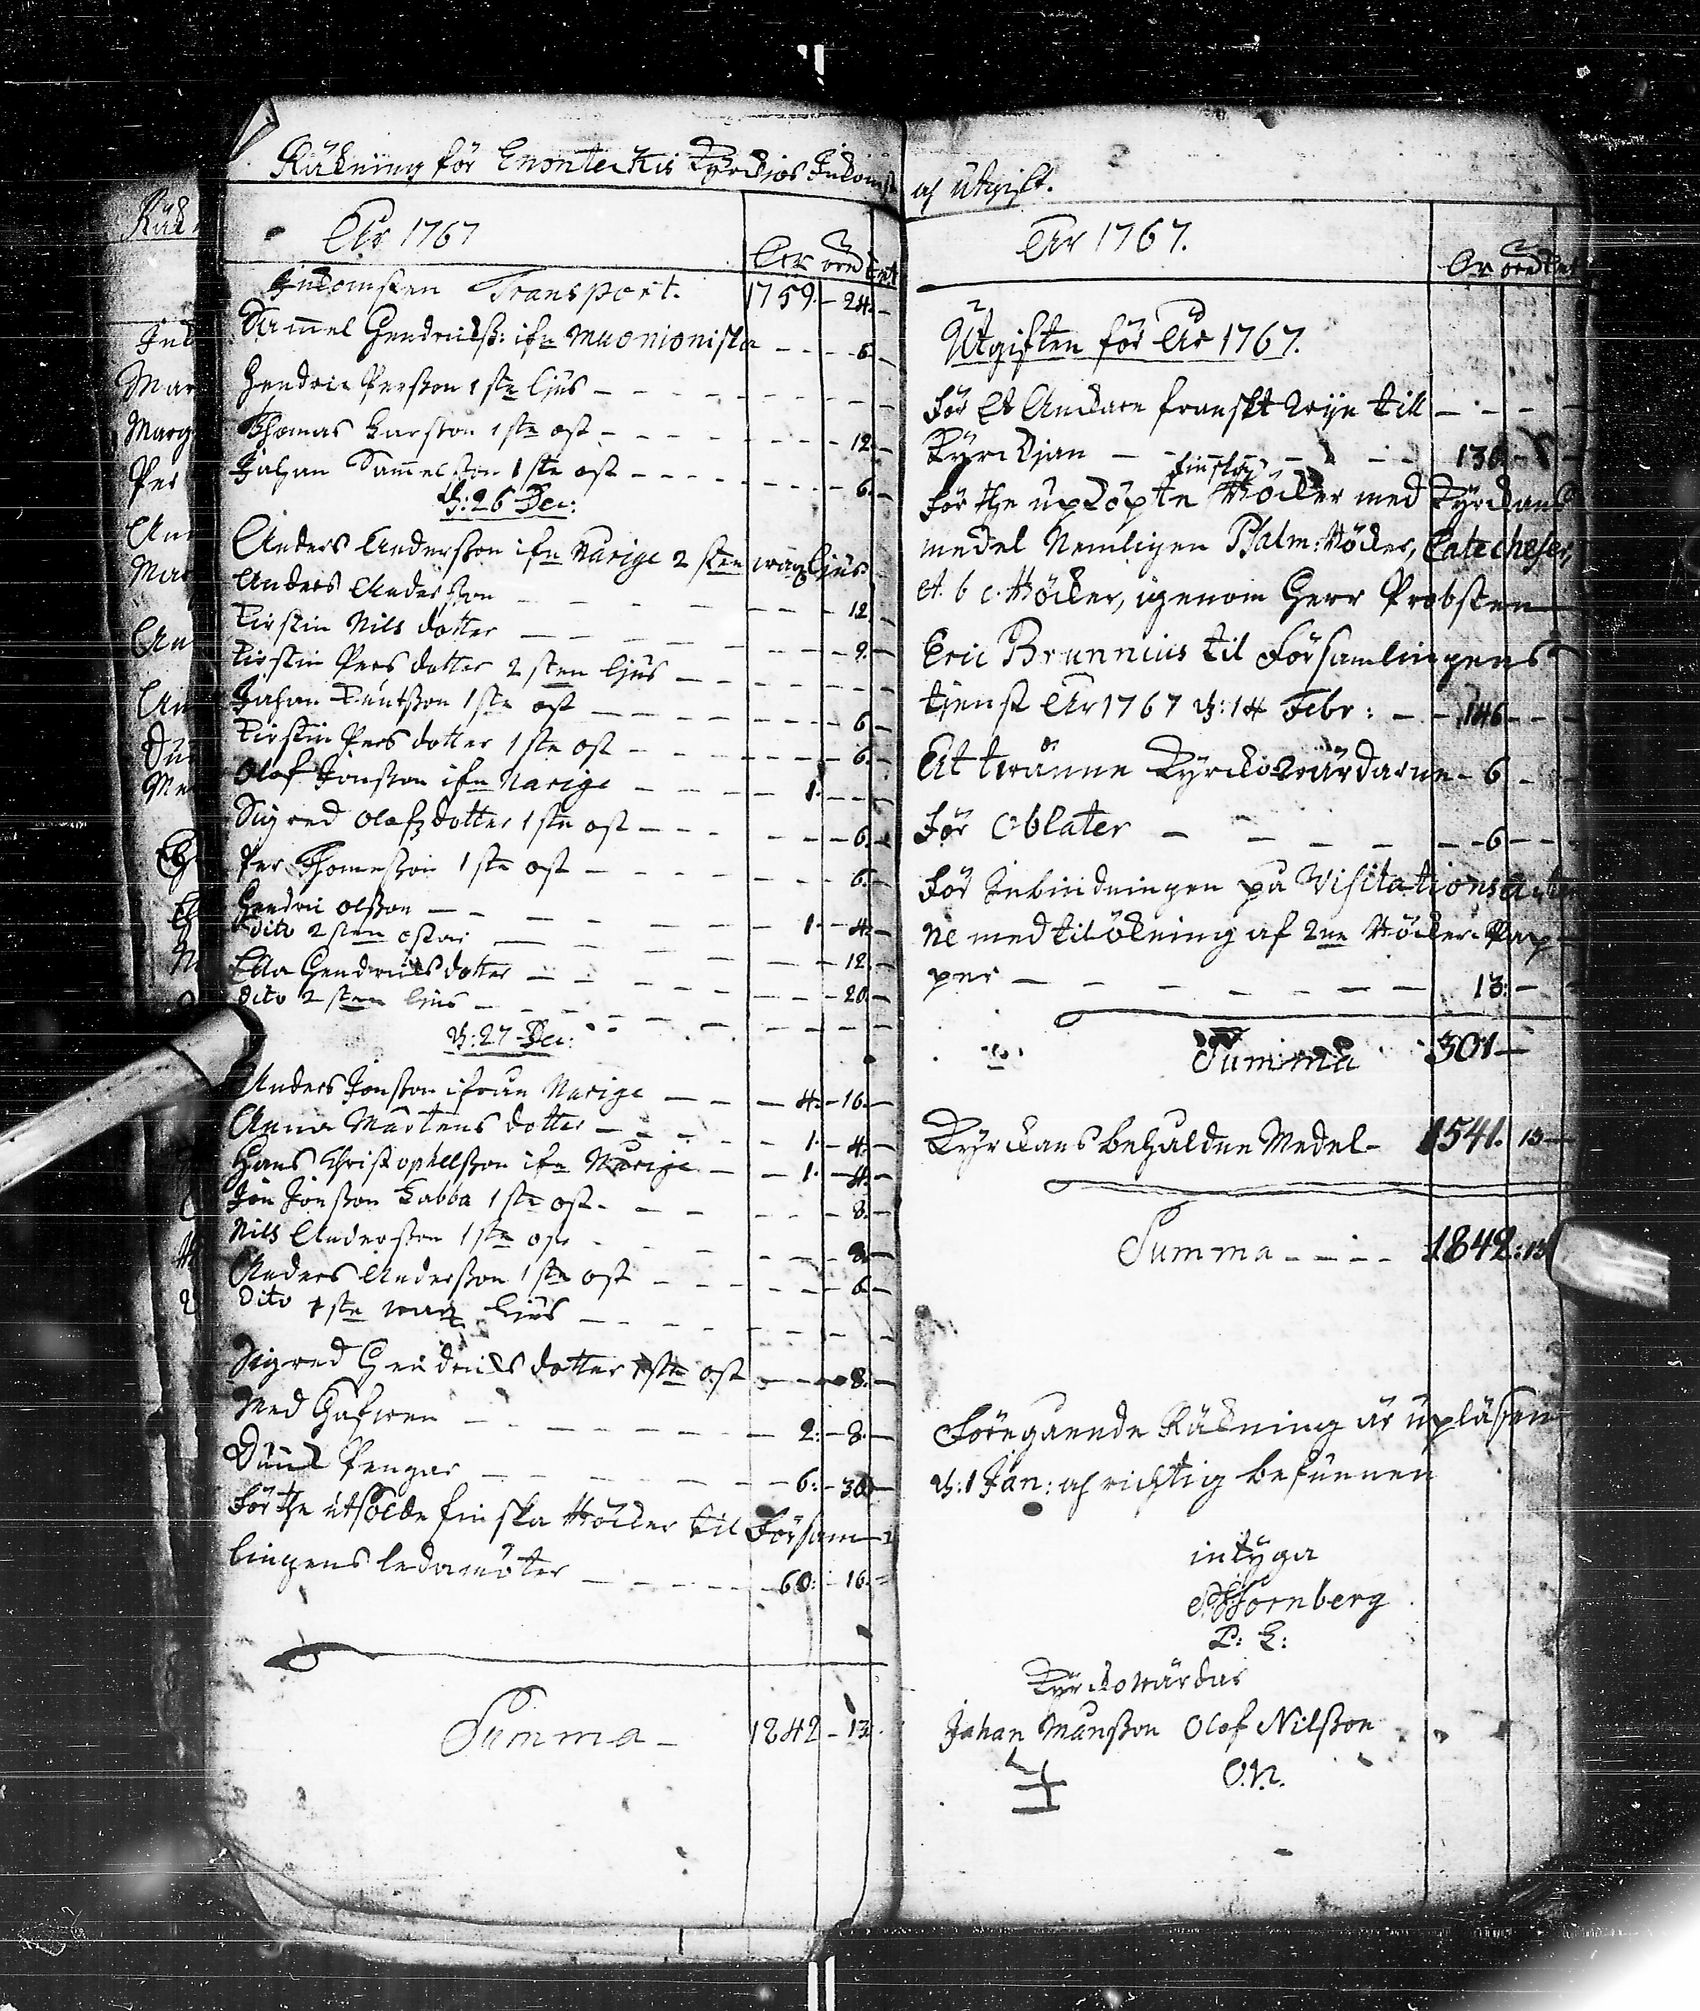 Räkning för Enonteckis Kyrckios Inkomst
År 1767
Inkomsten Transport. 1759 - 24 -
Samuel Hendrichß: ifn Muonioniska - - - 6 -
Hendric Perßon 1 stn ljus - - -
Thomas Larßon 1 stn ost - - - 12 -
Johan Samuelßon 1 stn ost - - - 6 -
d: 26 Dec:
Anders Anderßon ifn Narige 2 sten wax ljus
Anders Anderßon - - - 12 -
Kirstin Nils dotter - - - 9 -
Kirstin Pers dotter 2 sten ljus - - -
Johan Knutßon 1 stn ost - - - 6 -
Kirstin Pers dotter 1 stn ost - - - 6 -
Olof Jonßon ifn Narige - - - 1 - - -
Sigred Olofz dotter 1 stn ost - - - 6 -
Per Thomeßon 1 stn ost - - - 6 -
Hendric Olßon - - - 1 - 4 -
Dito 2 sten ostar - - - 12 -
Ella Hendrichs dotter - - - 20 -
Dito 2 sten ljus - - -
d: 27 Dec:
Anders Jonßon ifrån Narige - - - 4 - 16 -
Anna Mårtens dotter - - - 1 - 4 -
Hans Christophellßon ifn Narige - 1 - 4 -
Jon Jonßon Labba 1 stn ost - - - 8 -
Nils Anderßon 1 stn ost - - - 8 -
Anders Anderßon 1 stn ost - - - 6 -
Dito 1 stn wax ljus - - -
Sigred Hendrichs dotter 1 stn ost - - - 8 -
Med Håfwen - - - 2: - 8 -
Pengar - - - 6: - 30 -
För the utsolde finska Böcker til Försam-
lingens ledamöter - - - 60: - 16 -
Summa - 1842 - 13
och Utgift.
År 1767.
Utgiften för År 1767.
För Et Anckare franskt Wijn till - - -
Kyrckjan - - - 130 - - -
finska
För the uplöpte Böcker med Kyrckans
medel Nemligen Psalm: Böcker, Catecheser,
A. b c. Böcker, igenom Herr Probsten
Eric Brunnius til Församlingens
tjenst År 1767 d: 14 Febr: - - 146 - - -
At twänne Kyrckowärdarne - 6 - - -
För Oblater - - - 6 - - -
För Inbindningen på Visitations Acter
ne med tilökning af 2ne Böcker Pap-
per - - - 13: - -
Summa 301 -
Kyrckans behåldne Medel - 1541. 13 -
Summa - - - 1842: 13
Föregående Räkning är upläsen
d: 1 Jan: och richtig befunnen
intyga
Tornberg
P: L:
Kyrckowärdar
Johan Månßon Olof Nilßon
O.N.